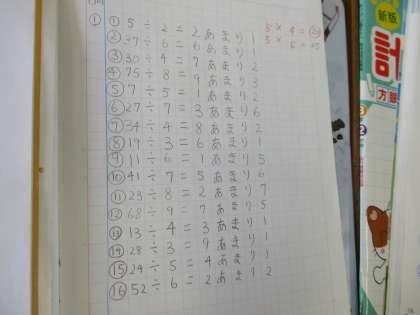 ① ① 5 ÷ 2 = 2 あまり 1
② 37 ÷ 6 = 6 あまり 1
③ 30 ÷ 4 = 7 あまり 2
④ 75 ÷ 8 = 9 あまり 3
⑤ 7 ÷ 5 = 1 あまり 2
⑥ 27 ÷ 7 = 3 あまり 6
⑦ 34 ÷ 4 = 8 あまり 2
⑧ 19 ÷ 3 = 6 あまり 1
⑨ 11 ÷ 6 = 1 あまり 5
⑩ 41 ÷ 7 = 5 あまり 6
⑪ 23 ÷ 8 = 2 あまり 7
⑫ 68 ÷ 9 = 7 あまり 5
⑬ 13 ÷ 4 = 3 あまり 1
⑭ 28 ÷ 3 = 9 あまり 1
⑮ 24 ÷ 5 = 4 あまり 1
⑯ 52 ÷ 6 = 2 あまり 2
新版